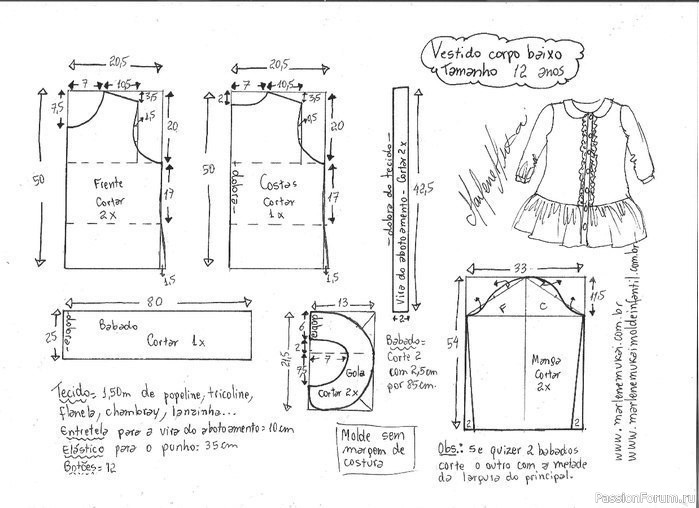 Vestido corpo baixo
Tamanho 12 anos
20,5
7
10,5
3,5
7,5
1,5
20
50
17
1,5
Frente
Cortar
2x
20,5
7
10,5
2
3,5
0,5
20
50
17
1,5
dobra
Costas
Cortar
1x
-dobra do tecido-
Vira do abotoamento - Cortar 2x
42,5
2
Marlene Mukai
80
25
dobra
Babado
Cortar 1x
13
21,5
6
dobra
2
7
7,5
Gola
Cortar 2x
Babado=
Corte 2
com 2,5cm
por 85cm.
33
11,5
54
F
C
Manga
Cortar
2x
2
2
www.marlenemukai.com.br
www.marlenemukaimoldeinfantil.com.br
Tecido= 1,50m de popeline, tricoline,
flanela, chambray, lanzinha...
Entretela para a vira do abotoamento=10cm
Elástico para o punho: 35cm
Botões= 12
Molde sem
margem de
costura
Obs.: Se quizer 2 babados
corte o outro com a metade
da largura do principal.
PassionForum.ru